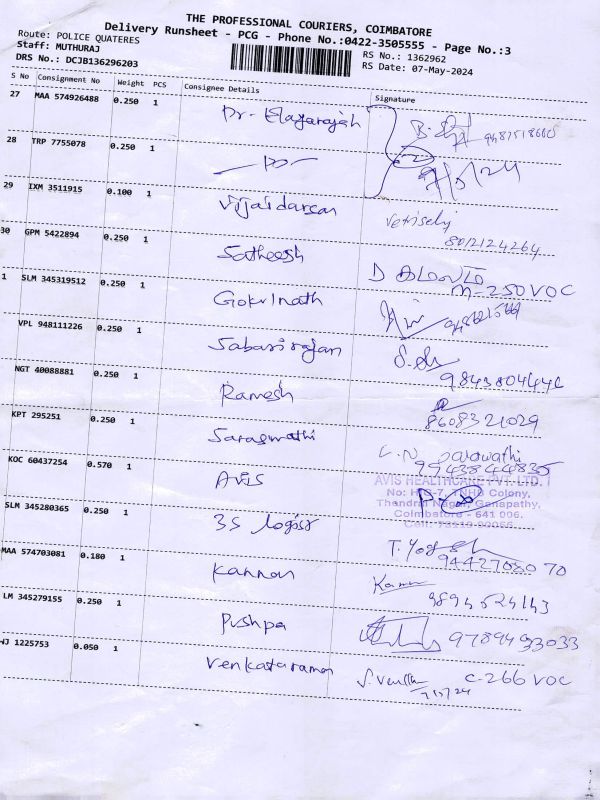 THE PROFESSIONAL COURIERS, COIMBATORE
Delivery Runsheet - PCG - Phone No.:0422-3505555 - Page No.:3
Route: POLICE QUATERES
Staff: MUTHURAJ
DRS No.: DCJB136296203
RS No.: 1362962
RS Date: 07-May-2024
S No Consignment No Weight PCS Consignee Details Signature
27 MAA 574926488 0.250 1 Dr. Elagarajah
28 TRP 7755078 0.250 1 7/5/24
29 IXM 3511915 0.100 1 Vijaidarsan 8012124264
30 GPM 5422894 0.250 1 Satheesh D
1 SLM 345319512 0.250 1 Gokulnath
VPL 948111226 0.250 1 Sabarirajan
NGT 40088881 0.250 1 Ramesh 8608321029
KPT 295251 0.250 1 Saraswathi
KOC 60437254 0.570 1 AVIS
AVIS HEALTHCARE PVT. LTD.
Colony,
Ganapathy,
Coimbatore - 641 006.
SLM 345280365 0.250 1 3S
MAA 574703081 0.180 1 Kannan 9894524143
LM 345279155 0.250 1 Pushpa
1225753 0.050 1 Venkataraman C-266 VOC